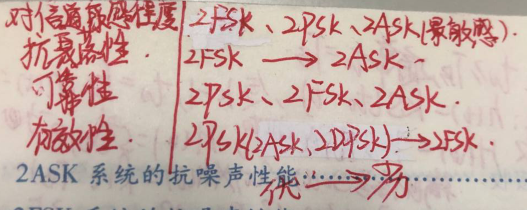 对信道敏感程度 2FSK、2PSK、2ASK(最敏感).
抗衰落性. 2FSK → 2ASK.
可靠性 2PSK、2FSK、2ASK.
有效性. 2PSK(2ASK、2DPSK) → 2FSK.
2ASK 系统的抗噪声性能
优 → 劣